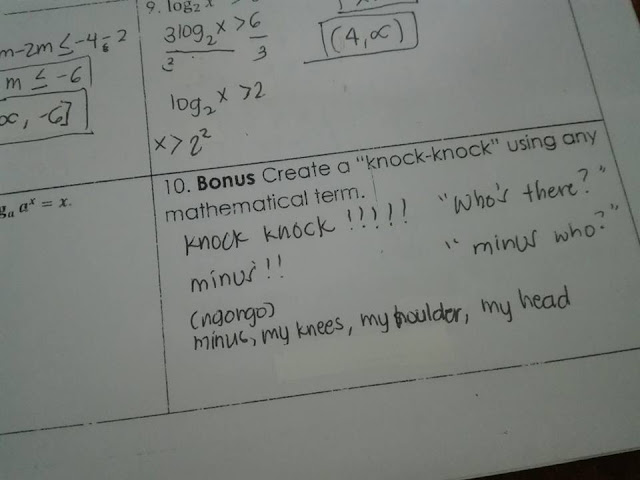 9. log₂ x
3log₂x > 6
3 3
log₂x > 2
x > 2²
(4, ∞)
m-2m ≤ -4-2
m ≤ -6
∞, -6]
aˣ = x.
10. Bonus Create a "knock-knock" using any
mathematical term.
knock knock !!!!! "Who's there?"
minus!! "minus who?"
(ngongo)
minus, my knees, my houlder, my head